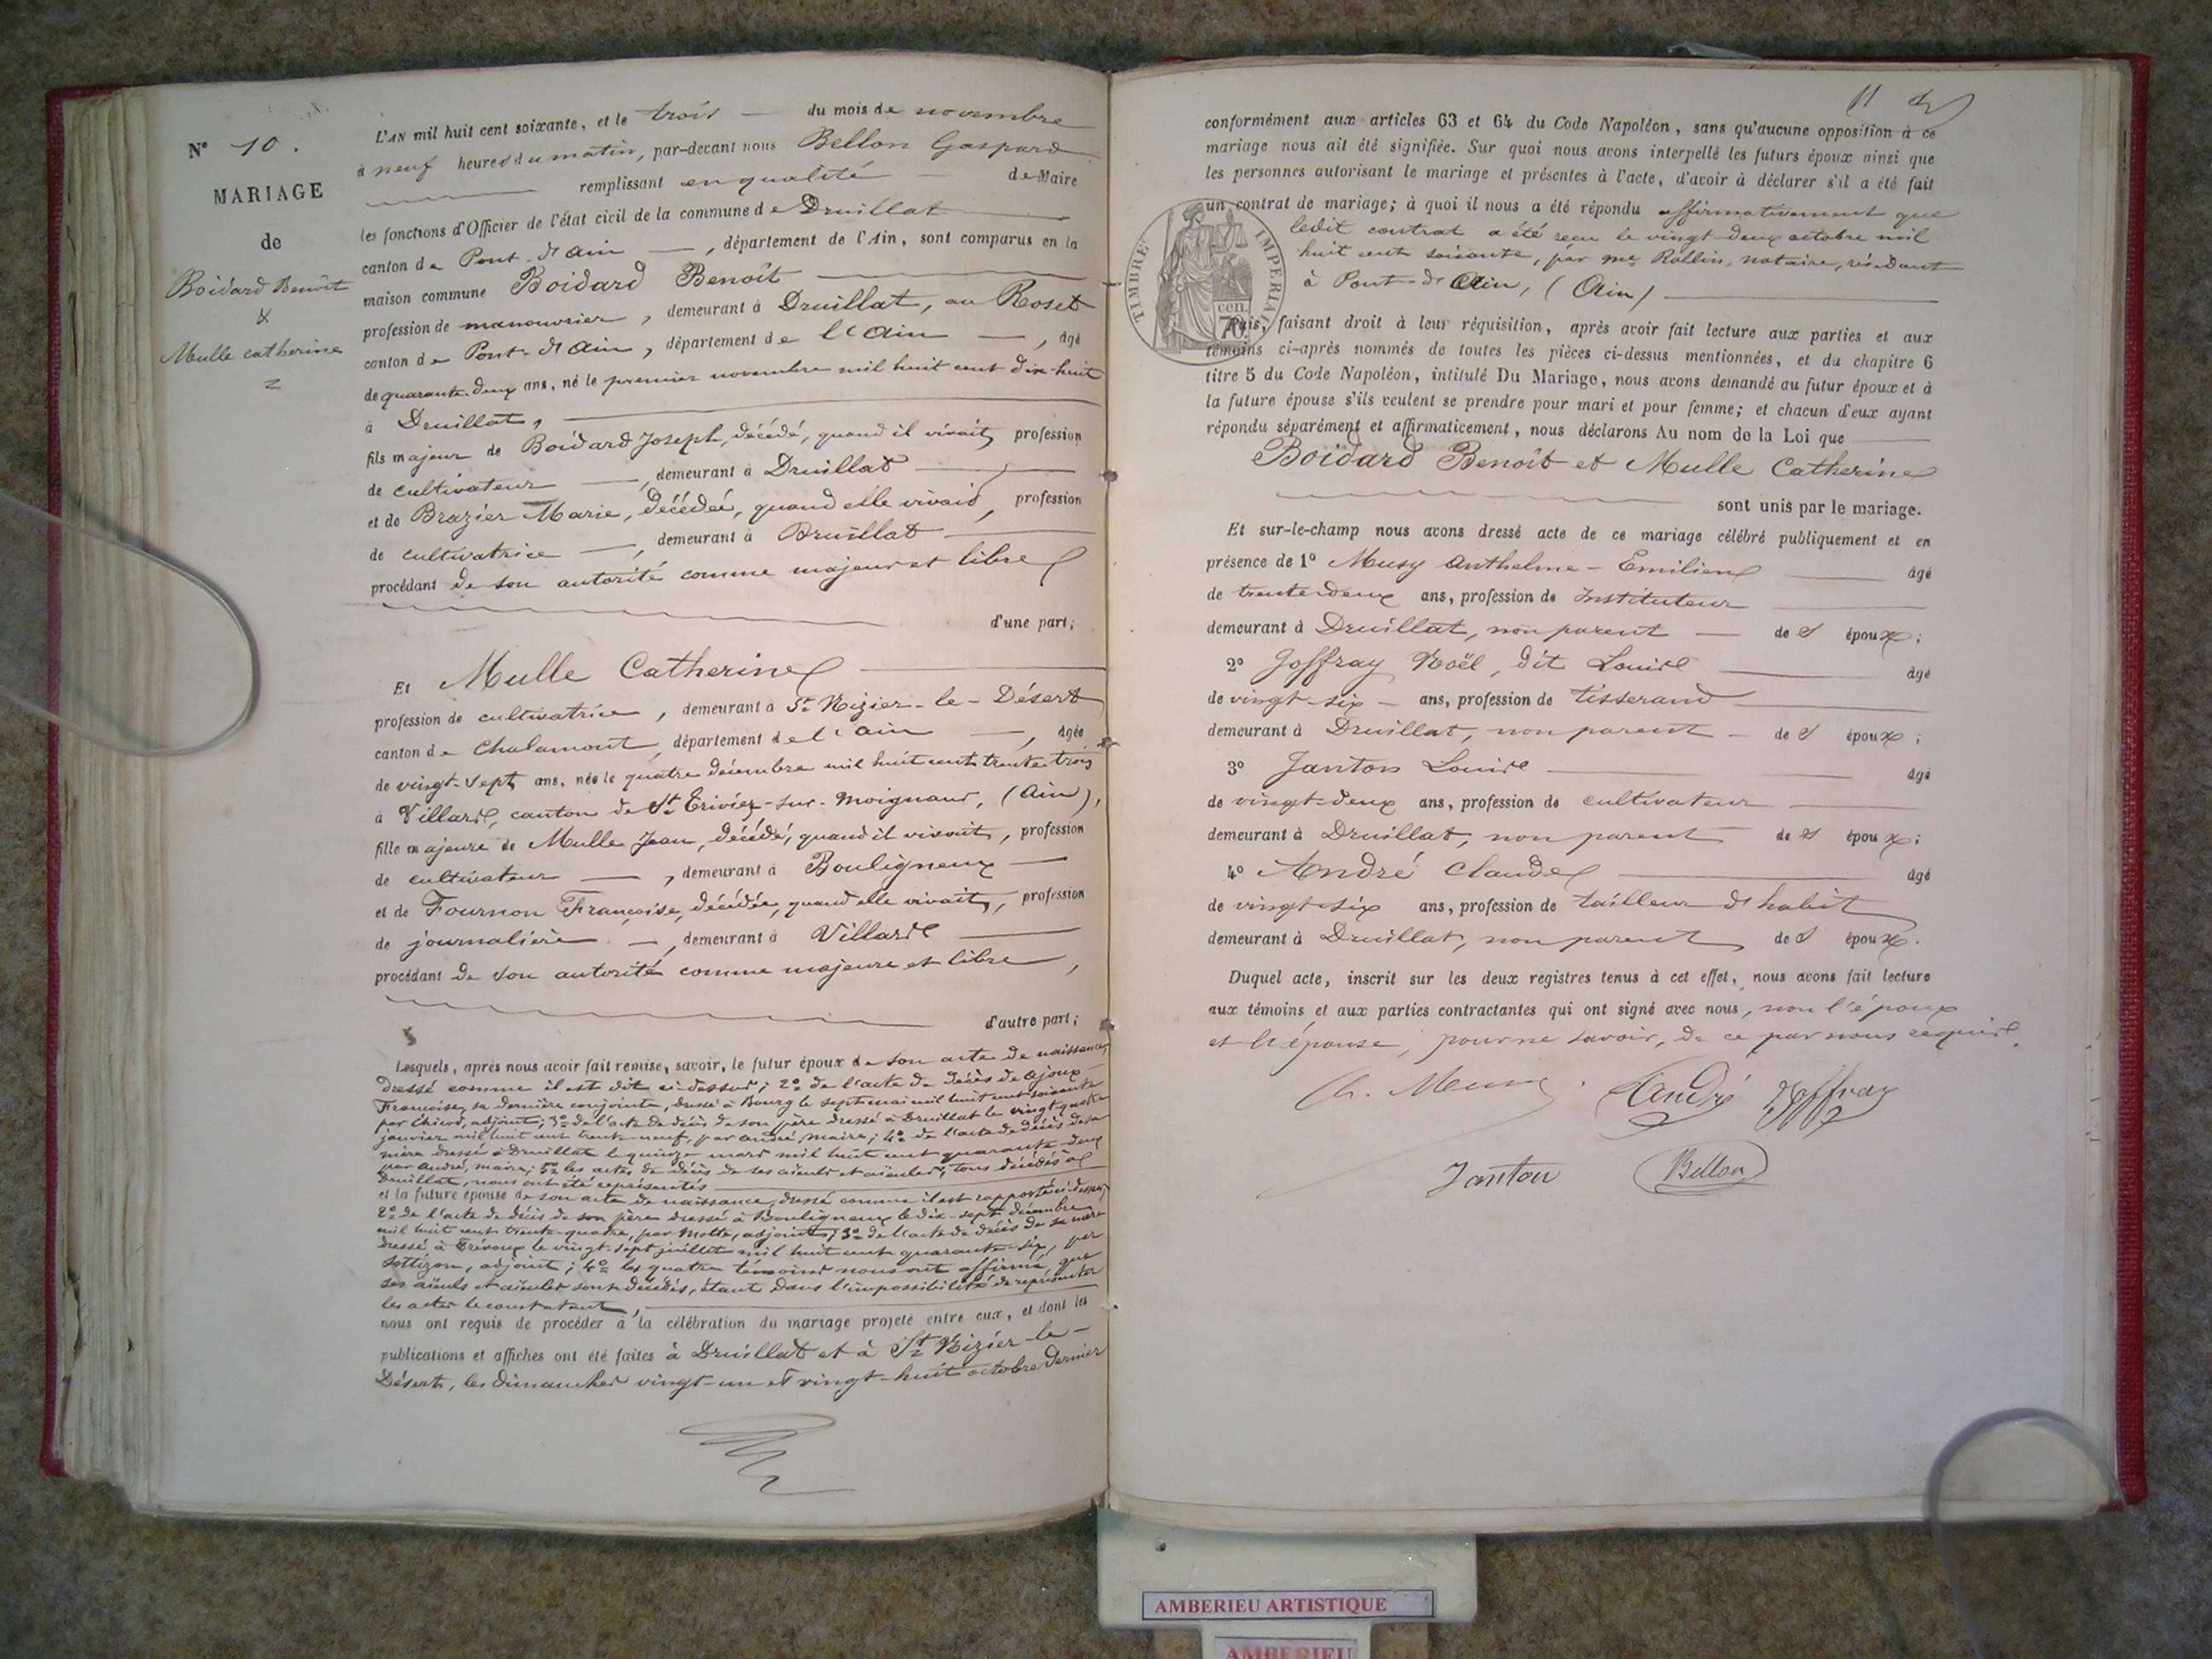 N° 10.
MARIAGE
de
Boidard Benoît
&
Mulle catherine
L'AN mil huit cent soixante, et le trois du mois de novembre
à neuf heures du matin, par-devant nous Bellon Gaspard
remplissant en qualité de Maire
les fonctions d'Officier de l'état civil de la commune de Druillat
canton de Pont-d'Ain, département de l'Ain, sont comparus en la
maison commune Boidard Benoît
profession de manouvrier, demeurant à Druillat, au Roset
canton de Pont-d'Ain, département de l'Ain, âgé
de quarante-deux ans, né le premier novembre mil huit cent dix-huit
à Druillat,
fils majeur de Boidard Joseph, décédé, quand il vivait, profession
de cultivateur, demeurant à Druillat
et de Brazier Marie, décédée, quand elle vivait, profession
de cultivatrice, demeurant à Druillat
procédant de son autorité comme majeur et libre
d'une part;
Et Mulle Catherine
profession de cultivatrice, demeurant à St Nizier-le-Désert
canton de Chalamont, département de l'ain, âgée
de vingt-sept ans, née le quatre décembre mil huit cent trente-trois
à Villars, canton de St Trivier-sur-Moignans, (Ain),
fille majeure de Mulle Jean, décédé, quand il vivait, profession
de cultivateur, demeurant à Bouligneux
et de Fournon Françoise, décédée, quand elle vivait, profession
de journalière, demeurant à Villars
procédant de son autorité comme majeure et libre,
d'autre part;
Lesquels, après nous avoir fait remise, savoir, le futur époux de son acte de naissance,
dressé comme il est dit ci-dessus; 2° de l'acte de décès de Ajoux
Françoise, sa dernière conjointe, dressé à Bourg le sept mai mil huit cent soixante
par Chicod, adjoint; 3° de l'acte de décès de son père dressé à Druillat le vingt-quatre
janvier mil huit cent trente-neuf, par André, maire; 4° de l'acte de décès de sa
mère dressé à Druillat le quinze mars mil huit cent quarante-deux
par André, maire; 5° les actes de décès de ses aïeuls et aïeules, tous décédés à
Druillat, nous ont été représentés
et la future épouse de son acte de naissance, dressé comme il est rapporté ci-dessus,
2° de l'acte de décès de son père dressé à Bouligneux le dix-sept décembre
mil huit cent trente-quatre, par Motte, adjoint; 3° de l'acte de décès de sa mère
dressé à Trévoux le vingt-sept juillet mil huit cent quarante-six, par
Sottizon, adjoint; 4° les quatre témoins nous ont affirmé, que
ses aïeuls et aïeules sont décédés, étant dans l'impossibilité de représenter
les actes le constatant,
nous ont requis de procéder à la célébration du mariage projeté entre eux, et dont les
publications et affiches ont été faites à Druillat et à St Nizier-le-
Désert, les dimanches vingt-un et vingt-huit octobre dernier
11
conformément aux articles 63 et 64 du Code Napoléon, sans qu'aucune opposition à ce
mariage nous ait été signifiée. Sur quoi nous avons interpellé les futurs époux ainsi que
les personnes autorisant le mariage et présentes à l'acte, d'avoir à déclarer s'il a été fait
un contrat de mariage; à quoi il nous a été répondu affirmativement que
ledit contrat a été reçu le vingt-deux octobre mil
huit cent soixante, par me Rollin, notaire, résidant
à Pont-d'Ain, (Ain)
TIMBRE IMPERIAL
cen.
Puis, faisant droit à leur réquisition, après avoir fait lecture aux parties et aux
témoins ci-après nommés de toutes les pièces ci-dessus mentionnées, et du chapitre 6
titre 5 du Code Napoléon, intitulé Du Mariage, nous avons demandé au futur époux et à
la future épouse s'ils veulent se prendre pour mari et pour femme; et chacun d'eux ayant
répondu séparément et affirmativement, nous déclarons Au nom de la Loi que
Boidard Benoît et Mulle Catherine
sont unis par le mariage.
Et sur-le-champ nous avons dressé acte de ce mariage célébré publiquement et en
présence de 1° Musy Anthelme-Emilien âgé
de trente-deux ans, profession de Instituteur
demeurant à Druillat, non parent des époux;
2° Joffray Noël, dit Louis âgé
de vingt-six ans, profession de tisserand
demeurant à Druillat, non parent des époux;
3° Janton Louis âgé
de vingt-deux ans, profession de cultivateur
demeurant à Druillat, non parent des époux;
4° André Claude âgé
de vingt-six ans, profession de tailleur d'habit
demeurant à Druillat, non parent des époux.
Duquel acte, inscrit sur les deux registres tenus à cet effet, nous avons fait lecture
aux témoins et aux parties contractantes qui ont signé avec nous, non l'époux
et l'épouse, pour ne savoir, de ce par nous requis.
André Joffray
Janton Bellon
AMBERIEU ARTISTIQUE
AMBERIEU